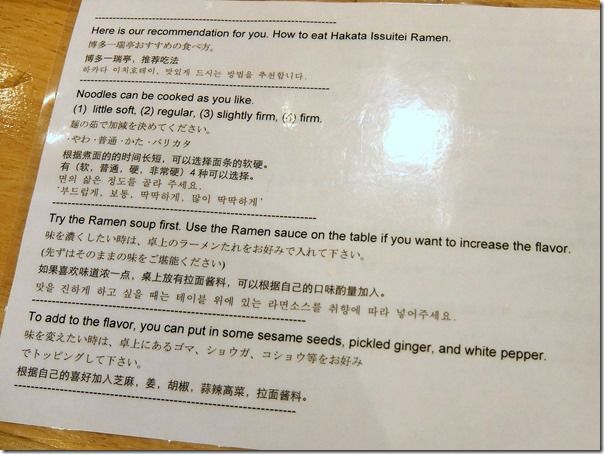 Here is our recommendation for you. How to eat Hakata Issuitei Ramen.
博多一瑞亭おすすめの食べ方。
博多一瑞亭，推荐吃法
하카다 이치호테이, 맛있게 드시는 방법을 추천합니다.
Noodles can be cooked as you like.
(1) little soft, (2) regular, (3) slightly firm, (4) firm.
麺の茹で加減を決めてください。
・やわ・普通・かた・バリカタ
根据煮面的的时间长短，可以选择面条的软硬。
有（软，普通，硬，非常硬）4 种可以选择。
면의 삶은 정도를 골라 주세요.
'부드럽게, 보통, 딱딱하게, 많이 딱딱하게'
Try the Ramen soup first. Use the Ramen sauce on the table if you want to increase the flavor.
味を濃くしたい時は、卓上のラーメンたれをお好みで入れて下さい。
(先ずはそのままの味をご堪能ください)
如果喜欢味道浓一点，桌上放有拉面酱料，可以根据自己的口味酌量加入。
맛을 진하게 하고 싶을 때는 테이블 위에 있는 라면소스를 취향에 따라 넣어주세요.
To add to the flavor, you can put in some sesame seeds, pickled ginger, and white pepper.
味を変えたい時は、卓上にあるゴマ、ショウガ、コショウ等をお好み
でトッピングして下さい。
根据自己的喜好加入芝麻，姜，胡椒，蒜辣高菜，拉面酱料。